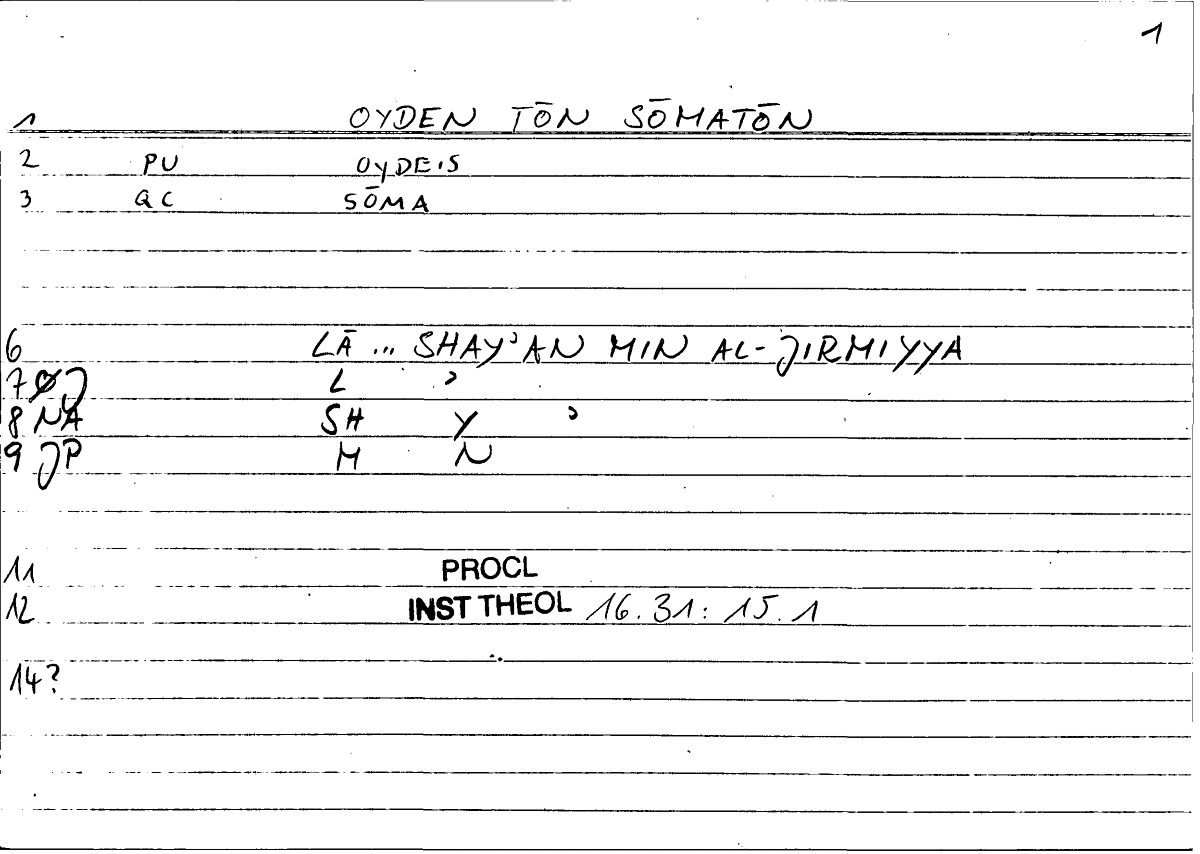 1
1 OYDEN TŌN SŌMATŌN
2 PU OYDEIS
3 QC SŌMA
6 LĀ ... SHAYʾAN MIN AL-JIRMIYYA
7 J L ʾ
8 NA SH Y ʾ
9 JP M N
11 PROCL
12 INST THEOL 16.31: 15.1
14?